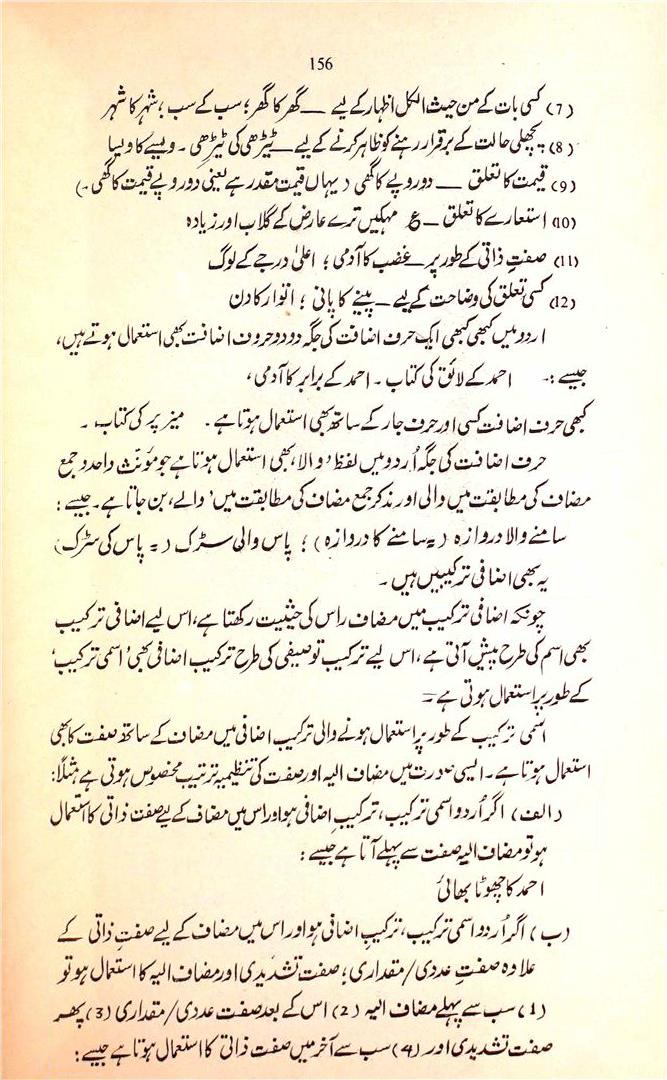 156
(7) کسی بات کے من حیث الکل اظہار کے لیے ــ گھر کا گھر؛ سب کے سب؛ شہر کا شہر
(8) پچھلی حالت کے برقرار رہنے کو ظاہر کرنے کے لیے ــ ٹیڑھی کی ٹیڑھی ۔ ویسے کا ویسا
(9) قیمت کا تعلق ــ دو روپے کا گھی (یہاں قیمت مقدر ہے یعنی دو روپے قیمت کا گھی۔)
(10) استعارے کا تعلق ــ ع مہکیں ترے عارض کے گلاب اور زیادہ
(11) صفتِ ذاتی کے طور پر ــ غضب کا آدمی؛ اعلیٰ درجے کے لوگ
(12) کسی تعلق کی وضاحت کے لیے ــ پینے کا پانی؛ اتوار کا دن
اردو میں کبھی کبھی ایک حرف اضافت کی جگہ دو دو حروف اضافت بھی استعمال ہوتے ہیں،
جیسے :۔ احمد کے لائق کی کتاب ۔ احمد کے برابر کا آدمی،
کبھی حرف اضافت کسی اور حرف جار کے ساتھ بھی استعمال ہوتا ہے ۔ میز پر کی کتاب ۔
حرف اضافت کی جگہ اُردو میں لفظ ' والا' بھی استعمال ہوتا ہے جو مؤنث واحد و جمع
مضاف کی مطابقت میں والی اور مذکر جمع مضاف کی مطابقت میں 'والے' بن جاتا ہے۔ جیسے :
سامنے والا دروازہ (= سامنے کا دروازہ)؛ پاس والی سڑک (= پاس کی سڑک)
یہ بھی اضافی ترکیبیں ہیں ۔
چونکہ اضافی ترکیب میں مضاف راس کی حیثیت رکھتا ہے، اس لیے اضافی ترکیب
بھی اسم کی طرح پیش آتی ہے، اس لیے ترکیب توصیفی کی طرح ترکیب اضافی بھی 'اسمی ترکیب'
کے طور پر استعمال ہوتی ہے ۔
اسمی ترکیب کے طور پر استعمال ہونے والی ترکیب اضافی میں مضاف کے ساتھ صفت کا بھی
استعمال ہوتا ہے۔ ایسی صورت میں مضاف الیہ اور صفت کی تنظیمیہ ترتیب مخصوص ہوتی ہے مثلاً:
(الف) اگر اُردو اسمی ترکیب، ترکیبِ اضافی ہو اور اس میں مضاف کے لیے صفت ذاتی کا استعمال
ہو تو مضاف الیہ صفت سے پہلے آتا ہے جیسے :
احمد کا چھوٹا بھائی
(ب) اگر اُردو اسمی ترکیب، ترکیبِ اضافی ہو اور اس میں مضاف کے لیے صفتِ ذاتی کے
علاوہ صفتِ عددی/مقداری؛ صفت تشدیدی اور مضاف الیہ کا استعمال ہو تو
(1) سب سے پہلے مضاف الیہ (2) اس کے بعد صفت عددی/مقداری (3) پھر
صفت تشدیدی اور (4) سب سے آخر میں صفت ذاتی کا استعمال ہوتا ہے جیسے :